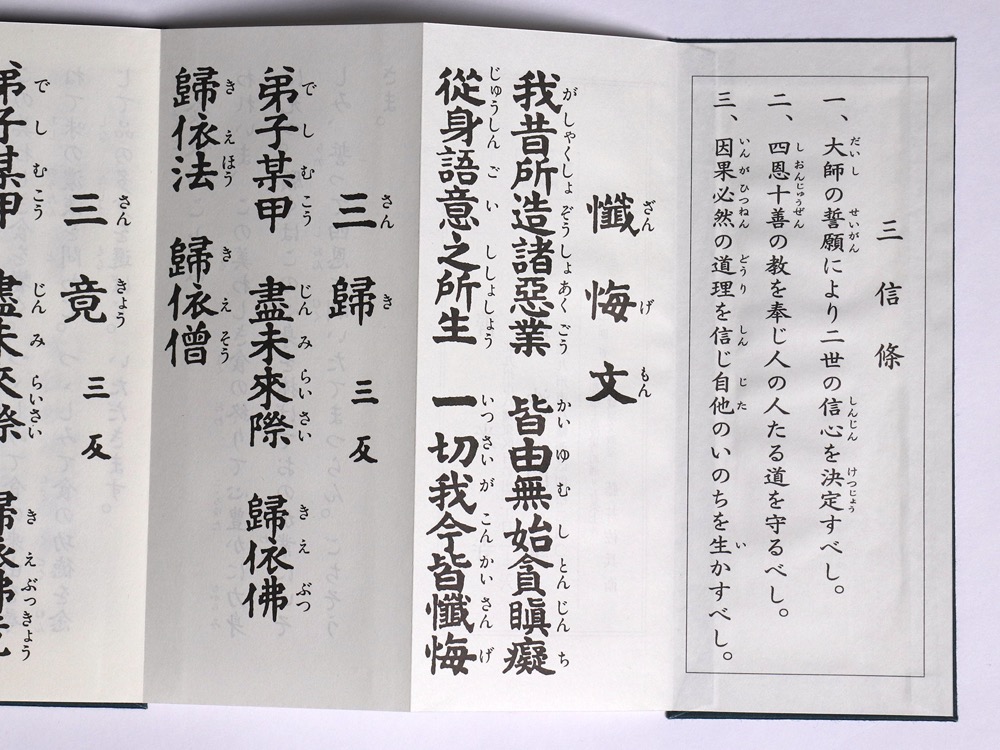 三信條
一、大師の誓願により二世の信心を決定すべし。
二、四恩十善の教を奉じ人の人たる道を守るべし。
三、因果必然の道理を信じ自他のいのちを生かすべし。
懺悔文
我昔所造諸惡業 皆由無始貪瞋癡
從身語意之所生 一切我今皆懺悔
三歸 三反
弟子某甲 盡未來際 歸依佛
歸依法 歸依僧
三竟 三反
弟子某甲 盡未來際 歸依佛竟